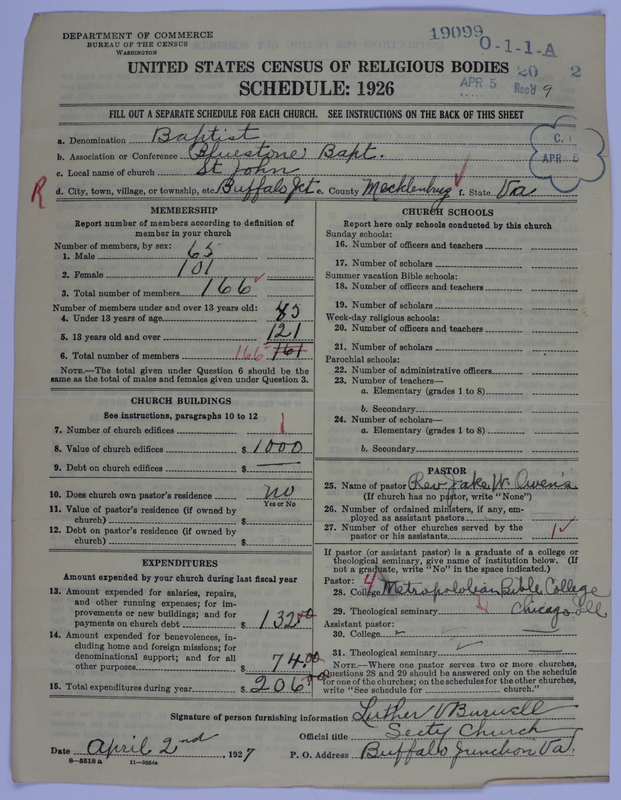 DEPARTMENT OF COMMERCE
BUREAU OF THE CENSUS
WASHINGTON
19099
O-1-1-A
20 2
APR 5 Rec'd 9
UNITED STATES CENSUS OF RELIGIOUS BODIES
SCHEDULE: 1926
FILL OUT A SEPARATE SCHEDULE FOR EACH CHURCH. SEE INSTRUCTIONS ON THE BACK OF THIS SHEET
C.
APR 5
a. Denomination Baptist
b. Association or Conference Bluestone Bapt.
c. Local name of church St John
R d. City, town, village, or township, etc. Buffalo Jct e. County Mecklenburg f. State Va
MEMBERSHIP
Report number of members according to definition of
member in your church
Number of members, by sex:
1. Male 65
2. Female 101
3. Total number of members 166
Number of members under and over 13 years old:
4. Under 13 years of age
5. 13 years old and over 121
6. Total number of members 166 161
NOTE.—The total given under Question 6 should be the
same as the total of males and females given under Question 3.
CHURCH BUILDINGS
See instructions, paragraphs 10 to 12
7. Number of church edifices 1
8. Value of church edifices $ 1000
9. Debt on church edifices $ —
10. Does church own pastor's residence no
Yes or No
11. Value of pastor's residence (if owned by
church) $
12. Debt on pastor's residence (if owned by
church) $
EXPENDITURES
Amount expended by your church during last fiscal year
13. Amount expended for salaries, repairs,
and other running expenses; for im-
provements or new buildings; and for
payments on church debt $ 132.00
14. Amount expended for benevolences, in-
cluding home and foreign missions; for
denominational support; and for all
other purposes $ 74.00
15. Total expenditures during year $ 206.00
CHURCH SCHOOLS
Report here only schools conducted by this church
Sunday schools:
16. Number of officers and teachers
17. Number of scholars
Summer vacation Bible schools:
18. Number of officers and teachers
19. Number of scholars
Week-day religious schools:
20. Number of officers and teachers
21. Number of scholars
Parochial schools:
22. Number of administrative officers
23. Number of teachers—
a. Elementary (grades 1 to 8)
b. Secondary
24. Number of scholars—
a. Elementary (grades 1 to 8)
b. Secondary
PASTOR
25. Name of pastor Rev Jake W. Owens
(If church has no pastor, write "None")
26. Number of ordained ministers, if any, em-
ployed as assistant pastors
27. Number of other churches served by the
pastor or his assistants 1
If pastor (or assistant pastor) is a graduate of a college or
theological seminary, give name of institution below. (If
not a graduate, write "No" in the space indicated.)
Pastor: 4
28. College Metropololian Bible College
29. Theological seminary Chicago Ill
Assistant pastor:
30. College
31. Theological seminary
NOTE.—Where one pastor serves two or more churches,
Questions 28 and 29 should be answered only on the schedule
for one of the churches; on the schedules for the other churches,
write "See schedule for church."
Signature of person furnishing information Luther V Burwell
Official title Secty Church
Date April 2nd, 1927 P. O. Address Buffalo Junction Va.
8—5518a 11—9054a